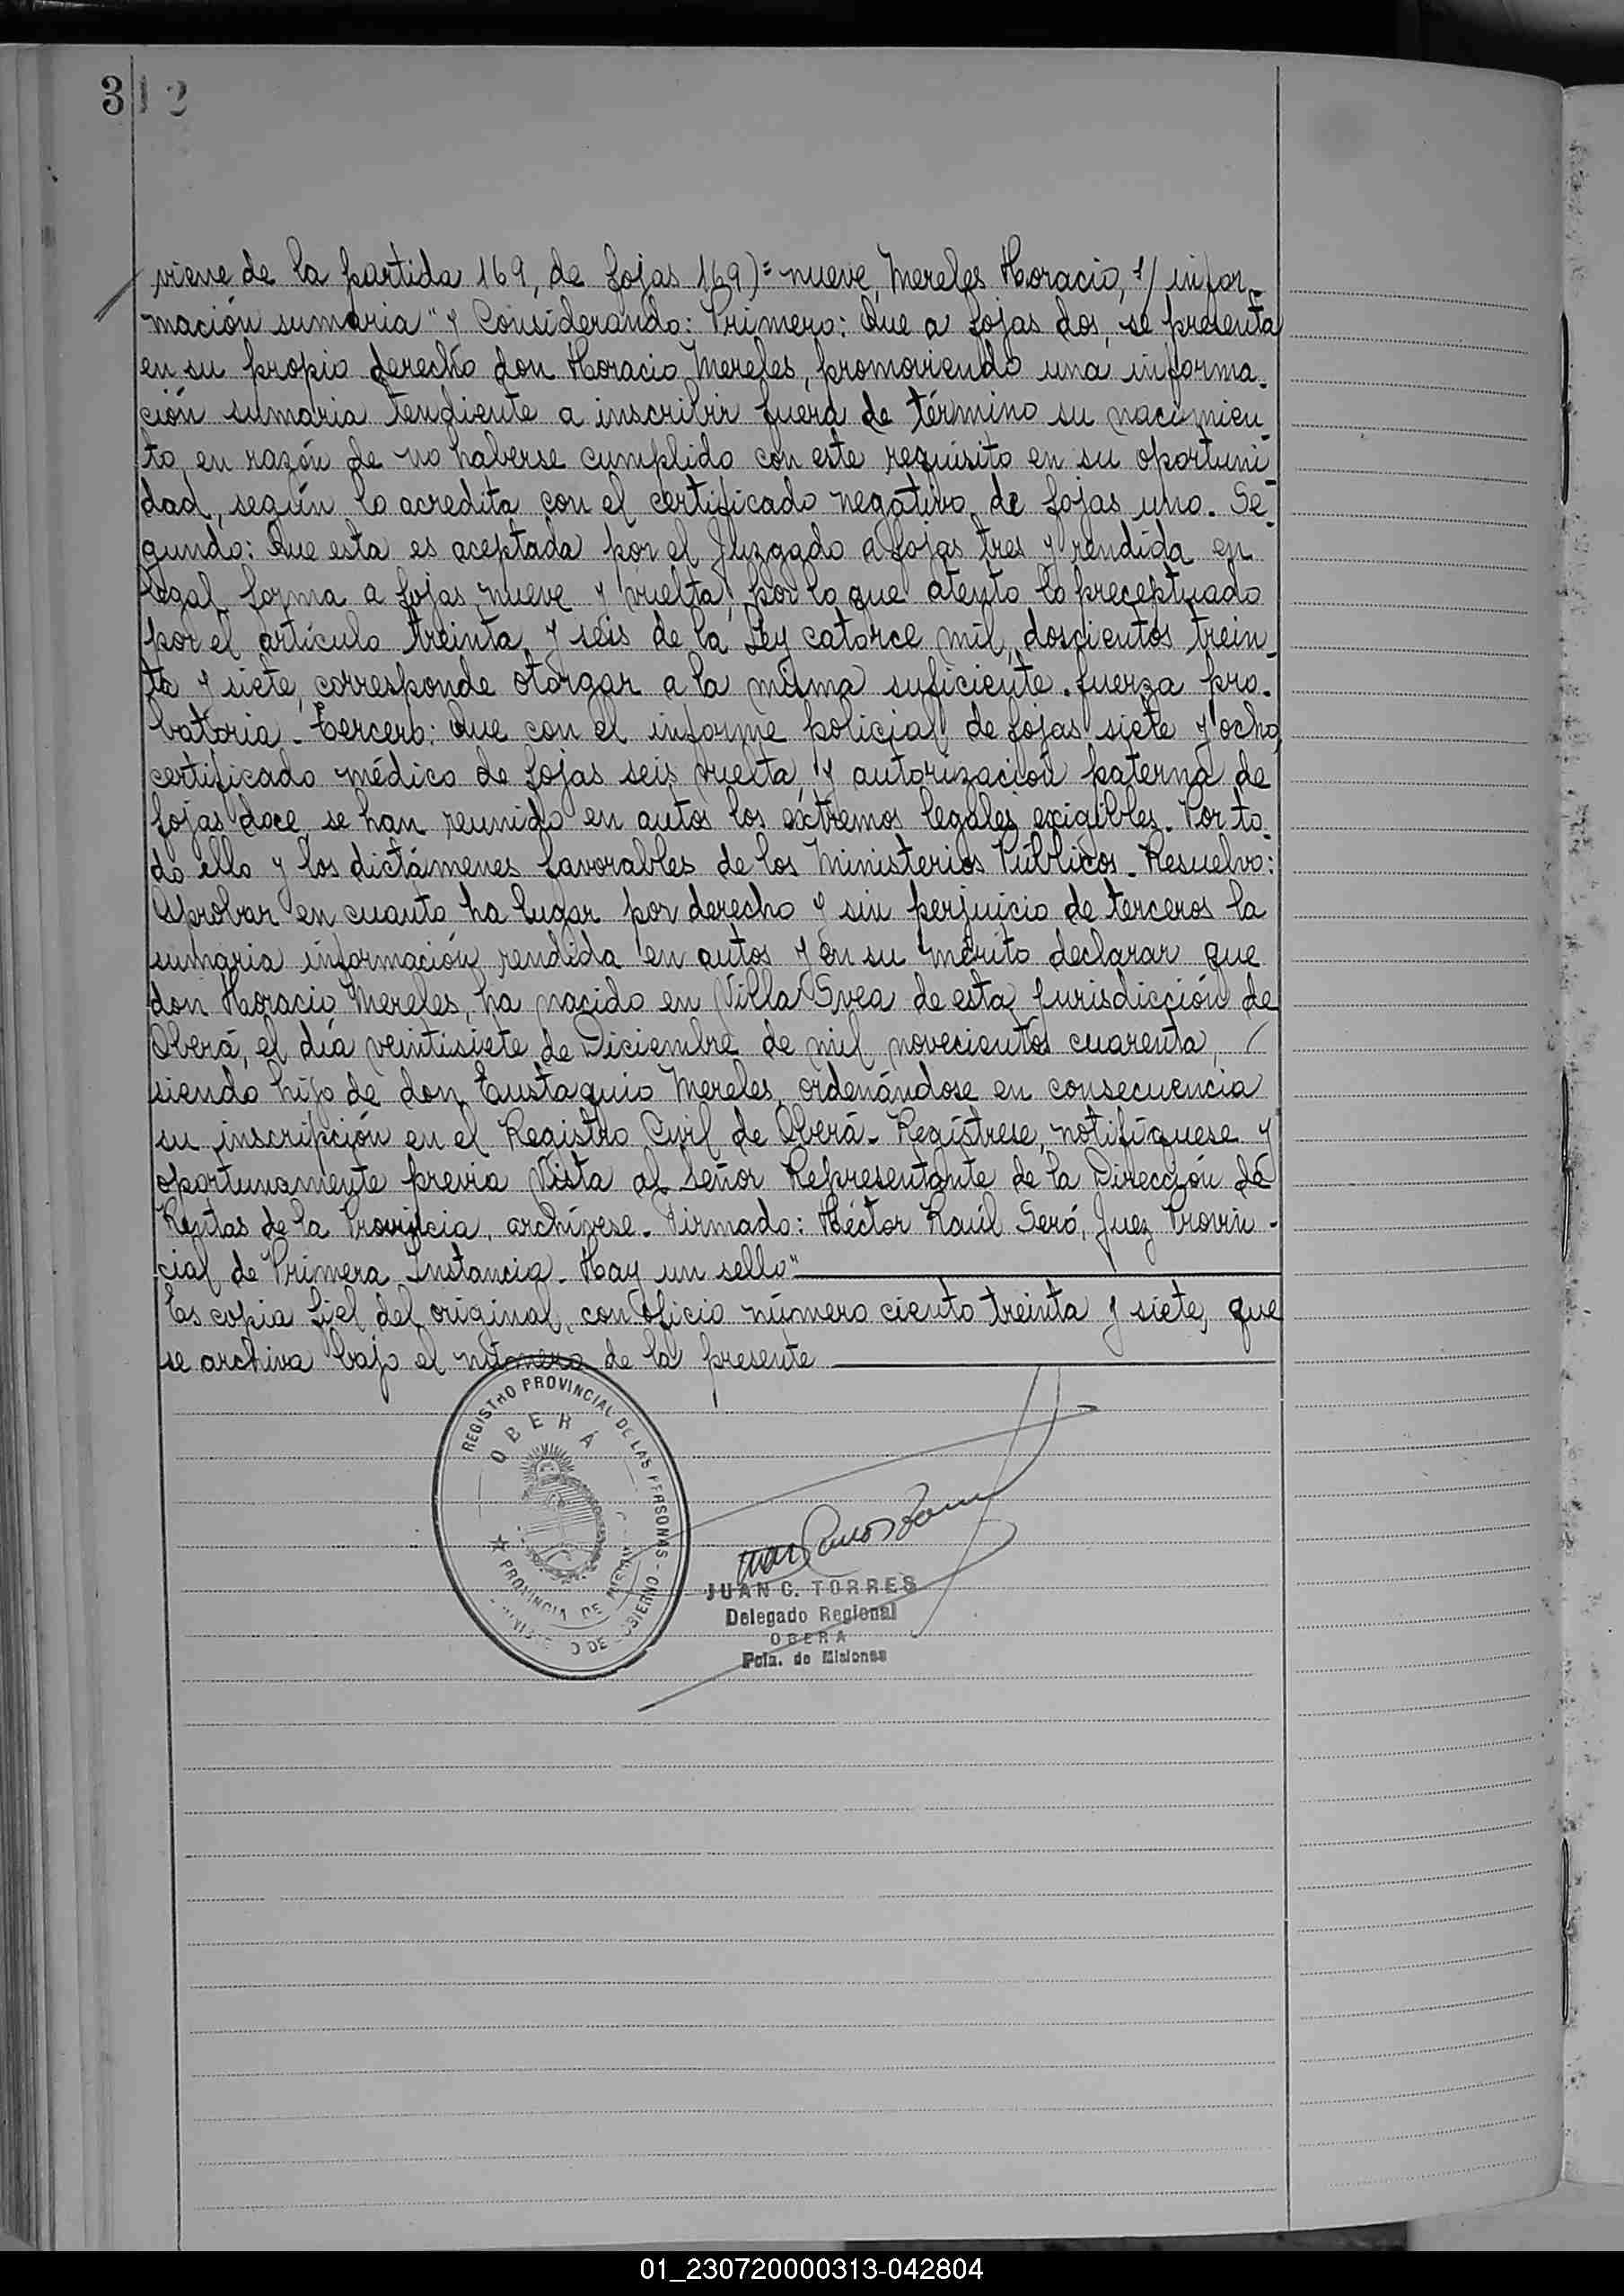 312
viene de la partida 169, de fojas 169) = nueve, Mereles Horacio, s/ infor-
mación sumaria" y Considerando: Primero: Que a fojas dos, se presenta
en su propio derecho don Horacio Mereles, promoviendo una informa-
ción sumaria tendiente a inscribir fuera de término su nacimien-
to, en razón de no haberse cumplido con este requisito en su oportuni
dad, según lo acredita con el certificado negativo de fojas uno. Se-
gundo: Que esta es aceptada por el Juzgado a fojas tres y rendida en
legal forma a fojas nueve y vuelta, por lo que atento lo preceptuado
por el artículo treinta y seis de la Ley catorce mil, doscientos trein-
ta y siete, corresponde otorgar a la misma suficiente fuerza pro-
batoria. Tercero: Que con el informe policial de fojas siete y ocho,
certificado médico de fojas seis vuelta, y autorización paterna de
fojas doce, se han reunido en autos los extremos legales exigibles. Por to-
do ello y los dictámenes favorables de los Ministerios Públicos. Resuelvo:
Aprobar en cuanto ha lugar por derecho y sin perjuicio de terceros la
sumaria información rendida en autos y en su mérito declarar que
don Horacio Mereles, ha nacido en Villa Svea de esta jurisdicción de
Oberá, el día veintisiete de Diciembre de mil novecientos cuarenta, /
siendo hijo de don Eustaquio Mereles, ordenándose en consecuencia
su inscripción en el Registro Civil de Oberá. Regístrese, notifíquese y
oportunamente previa Vista al Señor Representante de la Dirección de
Rentas de la Provincia, archívese. Firmado: Héctor Raúl Seró, Juez Provin-
cial de Primera Instancia. Hay un sello"
Es copia fiel del original, con oficio número ciento treinta y siete, que
se archiva bajo el número de la presente
REGISTRO PROVINCIAL DE LAS PERSONAS
OBERÁ
PROVINCIA DE MISIONES
JUAN C. TORRES
Delegado Regional
OBERA
Pcia. de Misiones
01_230720000313-042804